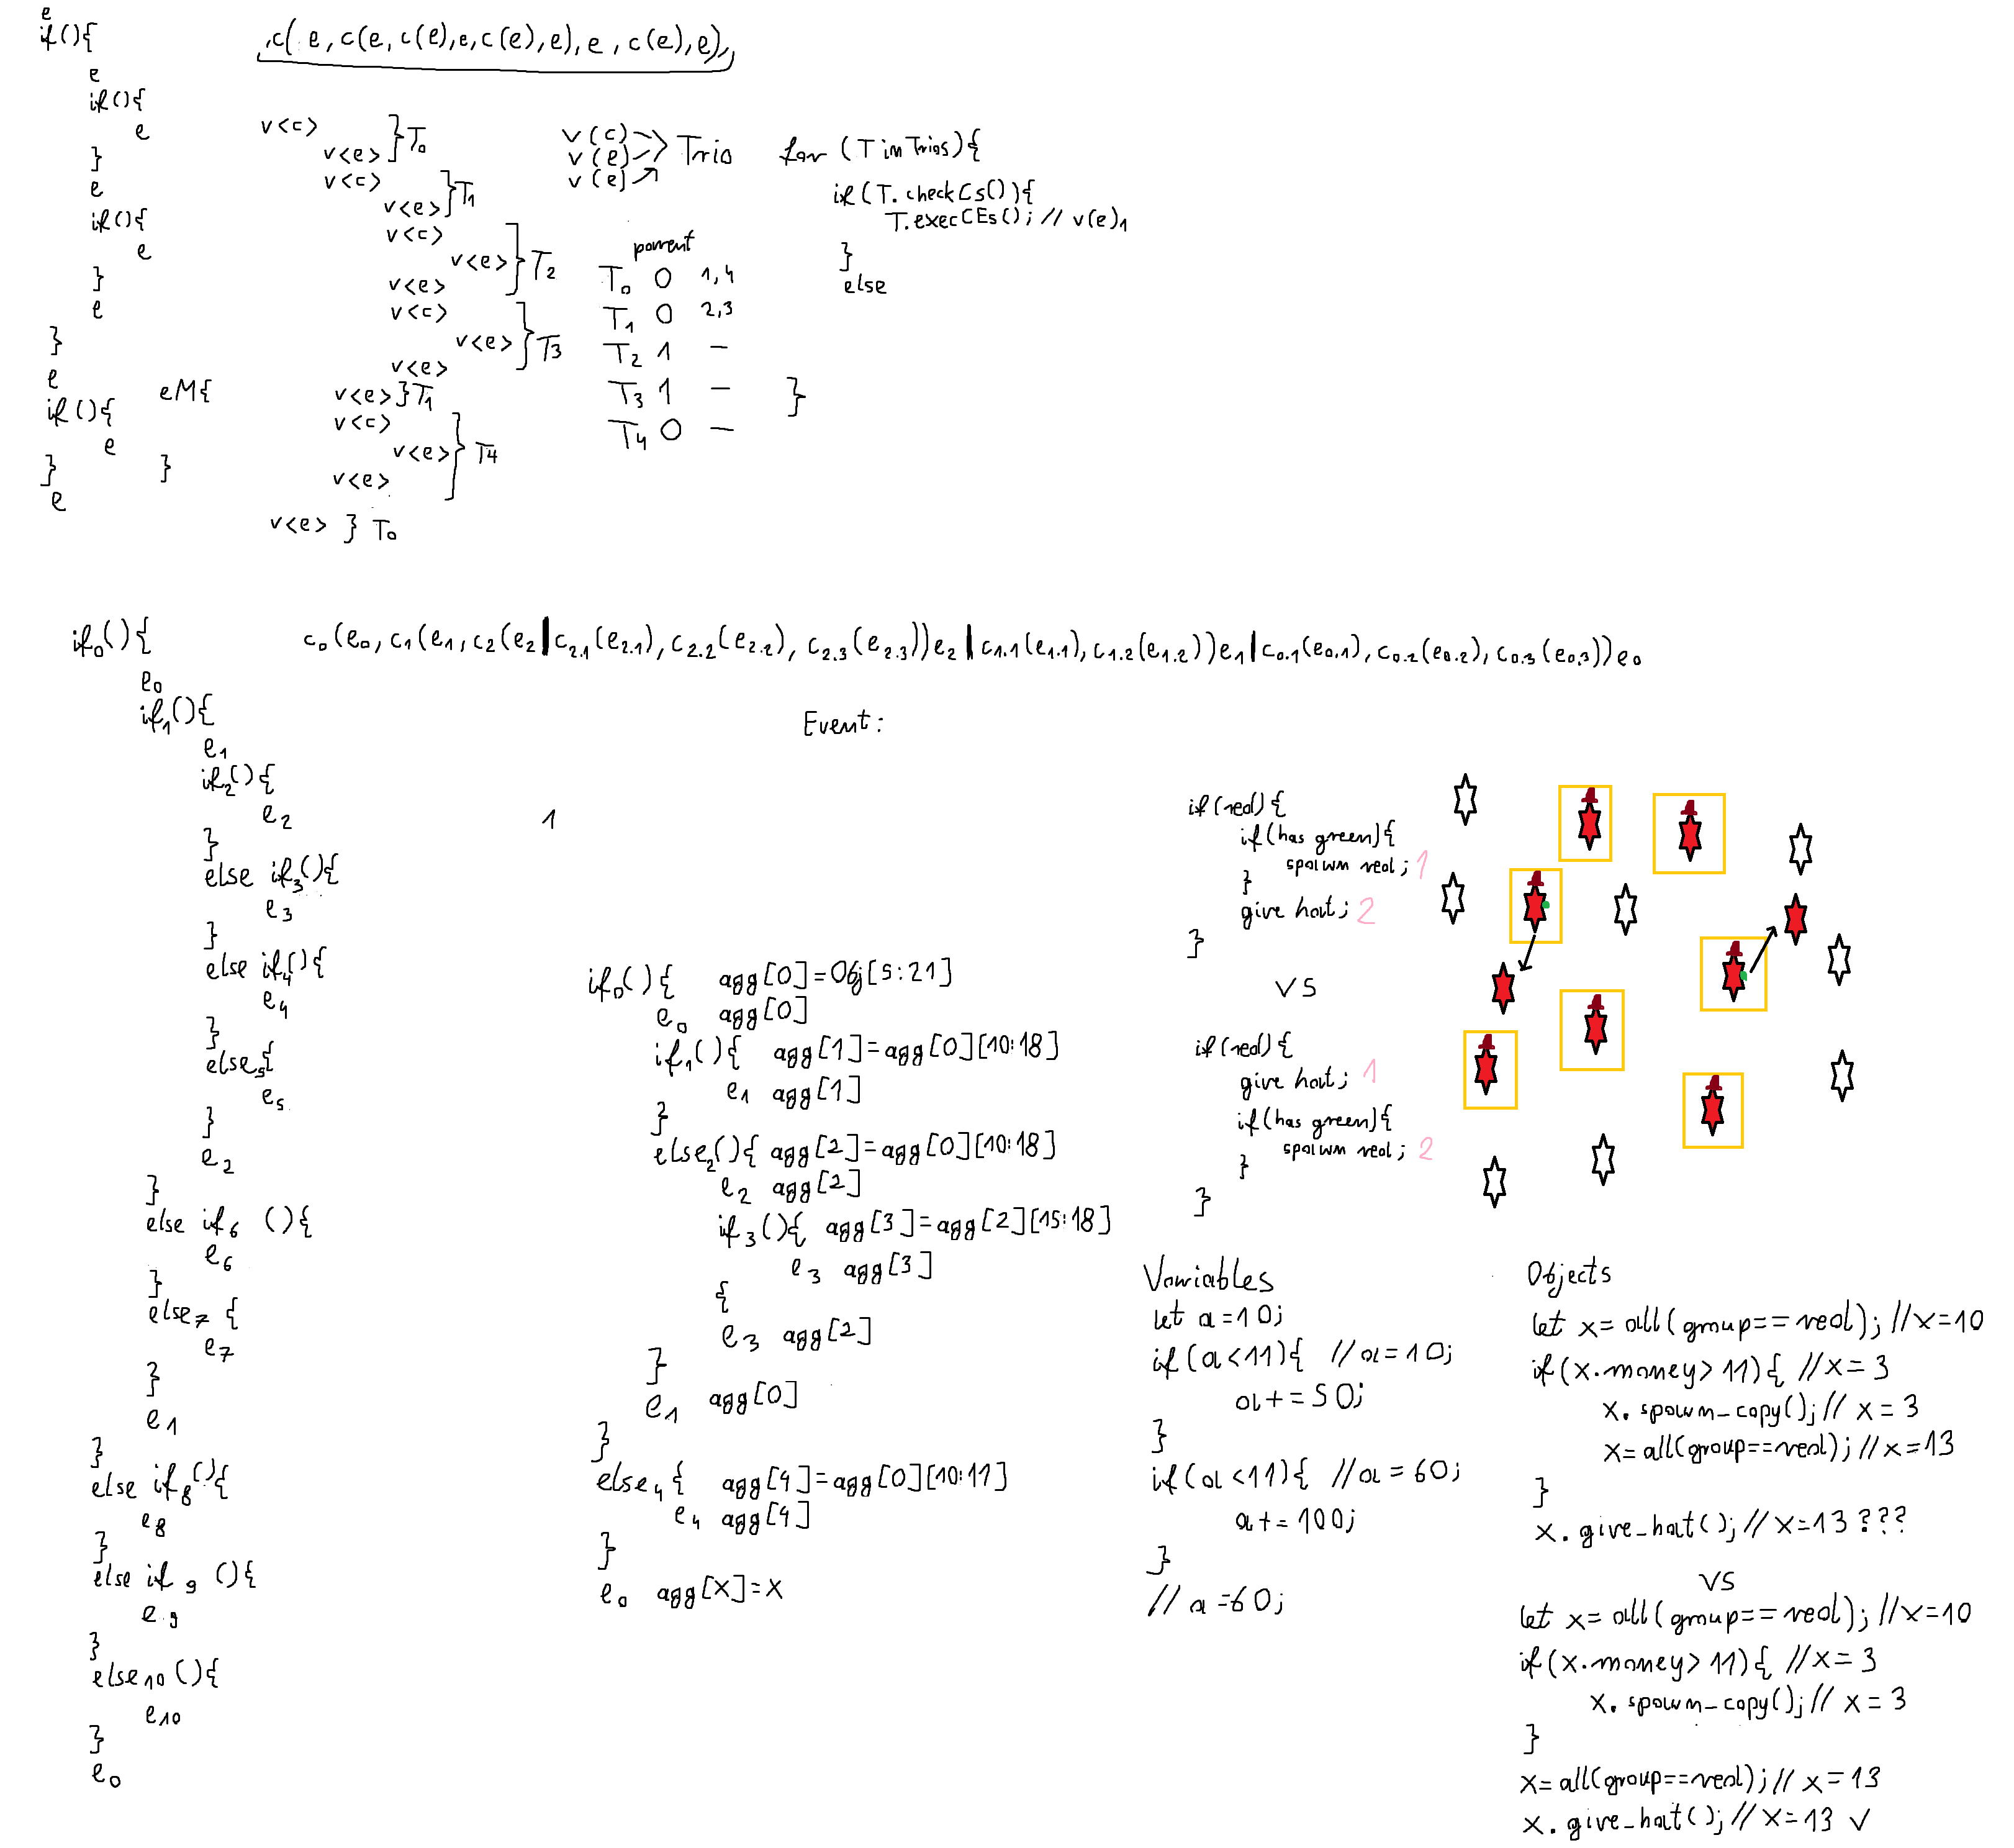 e
if(){
e
if(){
e
}
e
if(){
e
}
e
}
e
if(){
e
}
e
eM{
}
,c( e, c(e, c(e), e, c(e), e), e, c(e), e),
v<c>
v<e> } T0
v<c>
v<e> } T1
v<c>
v<e> } T2
v<e>
v<c>
v<e> } T3
v<e>
v<e> } T1
v<c>
v<e> } T4
v<e>
v<e> } T0
v(c)
v(e) Trio
v(e)
parent
T0 0 1,4
T1 0 2,3
T2 1 –
T3 1 –
T4 0 –
for (T in Trios){
if(T.checkCs()){
T.execCEs(); // v(e)1
}
else
}
if0(){
e0
if1(){
e1
if2(){
e2
}
else if3(){
e3
}
else if4(){
e4
}
else5{
e5
}
e2
}
else if6 (){
e6
}
else7 {
e7
}
e1
}
else if8(){
e8
}
else if 9 (){
e9
}
else10 (){
e10
}
e0
c0(e0, c1(e1, c2(e2|c2.1(e2.1), c2.2(e2.2), c2.3(e2.3))e2|c1.1(e1.1), c1.2(e1.2))e1|c0.1(e0.1), c0.2(e0.2), c0.3(e0.3))e0
Event:
1
if0(){ agg[0]=Obj[5:21]
e0 agg[0]
if1(){ agg[1]=agg[0][10:18]
e1 agg[1]
}
else2(){ agg[2]=agg[0][10:18]
e2 agg[2]
if3(){ agg[3]=agg[2][15:18]
e3 agg[3]
{
e3 agg[2]
}
e1 agg[0]
}
else4 { agg[4]=agg[0][10:11]
e4 agg[4]
}
e0 agg[x]=x
if(red){
if(has green){
spawn red; 1
}
give hat; 2
}
VS
if(red){
give hat; 1
if(has green){
spawn red; 2
}
}
Variables
let a=10;
if(a<11){ //a=10;
a+=50;
}
if(a<11){ //a=60;
a+=100;
}
// a=60;
Objects
let x=all(group==red); //x=10
if(x.money>11){ //x=3
x.spawn_copy(); // x=3
x=all(group==red); //x=13
}
x.give_hat(); // x=13 ???
VS
let x=all(group==red); //x=10
if(x.money>11){ //x=3
x.spawn_copy(); // x=3
}
x=all(group==red); // x=13
x.give_hat(); // x=13 ✓